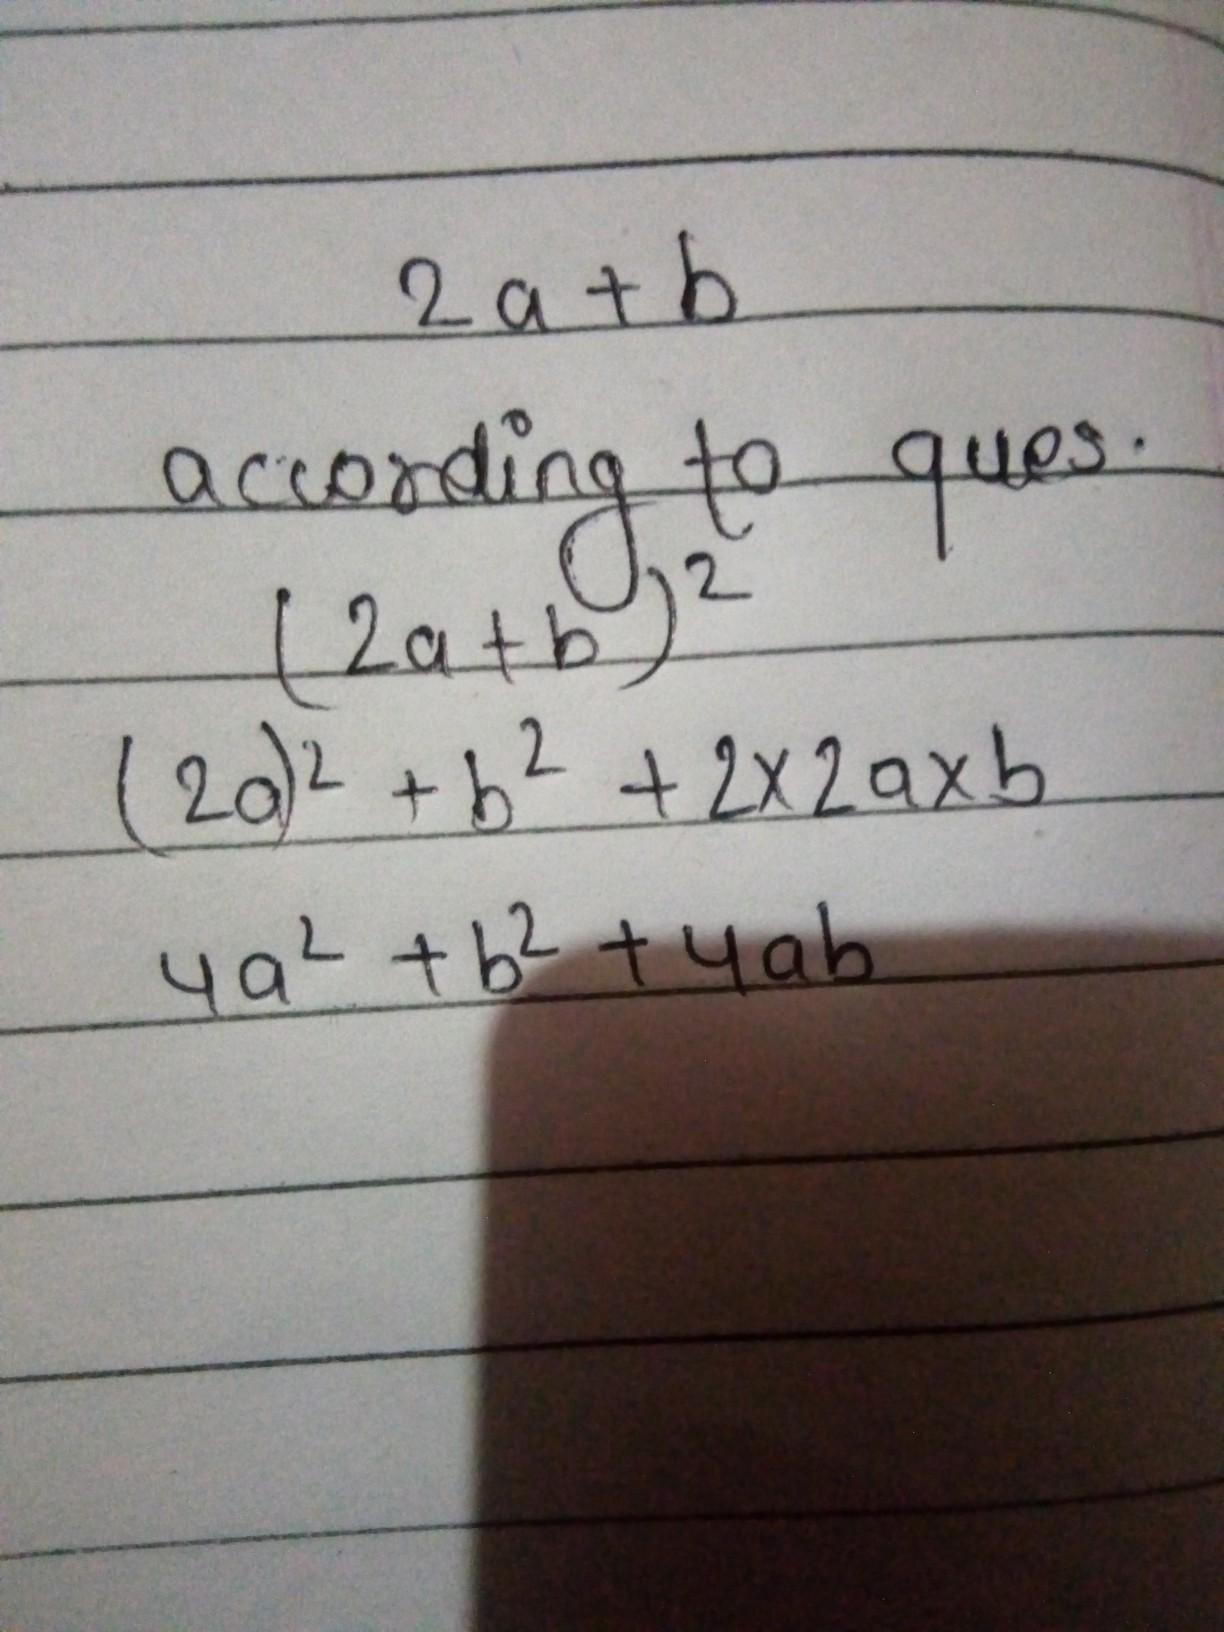 2a + b
according to ques.
(2a + b)²
(2a)² + b² + 2×2a×b
4a² + b² + 4ab